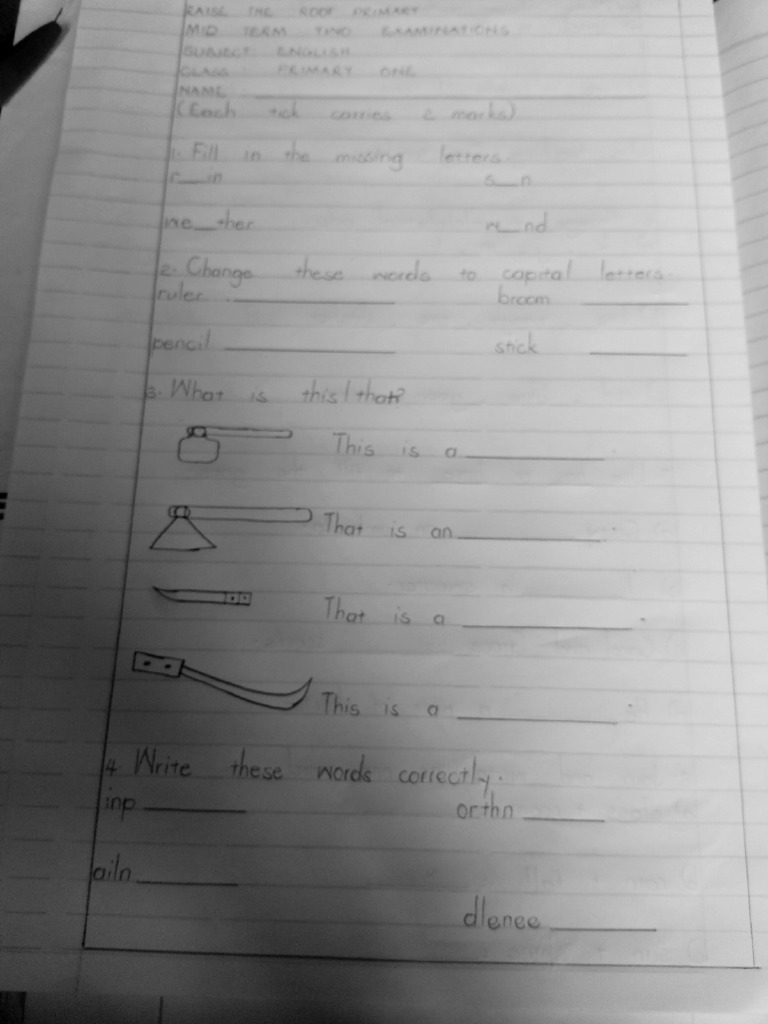 RAISE THE ROOF PRIMARY
MID TERM TWO EXAMINATIONS
SUBJECT: ENGLISH
CLASS: PRIMARY ONE
NAME ____________
(Each tick carries 2 marks)
1. Fill in the missing letters
r__in s__n
we__ther w__nd
2. Change these words to capital letters.
ruler ____________ broom ____________
pencil ____________ stick ____________
3. What is this/that?
This is a ____________.
That is an ____________.
That is a ____________.
This is a ____________.
4. Write these words correctly.
inp ____________ orthn ____________
ailn ____________
dlenee ____________